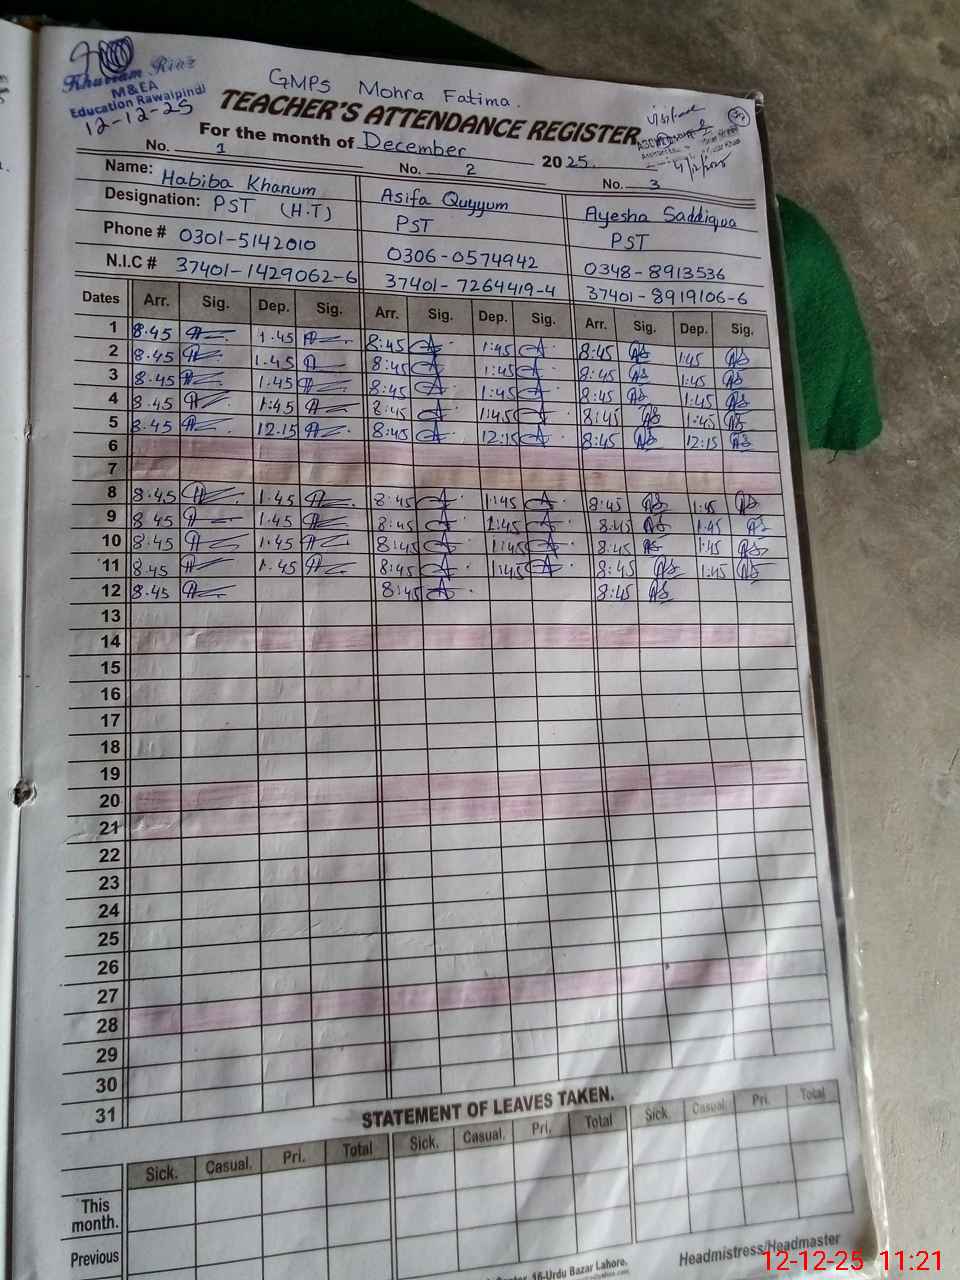 Khurram Riaz
M&EA
Education Rawalpindi
12-12-25
GMPS Mohra Fatima.
TEACHER'S ATTENDANCE REGISTER
For the month of December 2025.
No. 1 No. 2 No. 3
Name: Habiba Khanum Asifa Quyyum Ayesha Saddiqua
Designation: PST (H.T) PST PST
Phone # 0301-5142010 0306-0574942 0348-8913536
N.I.C # 37401-1429062-6 37401-7264419-4 37401-8919106-6
Dates Arr. Sig. Dep. Sig. Arr. Sig. Dep. Sig. Arr. Sig. Dep. Sig.
1 8.45 1.45 8:45 1:45 8:45 1:45
2 8.45 1.45 8:45 1:45 8:45 1:45
3 8.45 1.45 8:45 1:45 8:45 1:45
4 8.45 1.45 8:45 1:45 8:45 1:45
5 8.45 12.15 8:45 12:15 8:45 12:15
6
7
8 8.45 1.45 8:45 1:45 8:45 1:45
9 8.45 1.45 8:45 1:45 8:45 1:45
10 8.45 1.45 8:45 1:45 8:45 1:45
11 8.45 1.45 8:45 1:45 8:45 1:45
12 8.45 8:45 8:45
13
14
15
16
17
18
19
20
21
22
23
24
25
26
27
28
29
30
31
STATEMENT OF LEAVES TAKEN.
Sick. Casual. Pri. Total Sick. Casual. Pri. Total Sick. Casual. Pri. Total
This month.
Previous
16-Urdu Bazar Lahore.
Headmistress/Headmaster
12-12-25 11:21